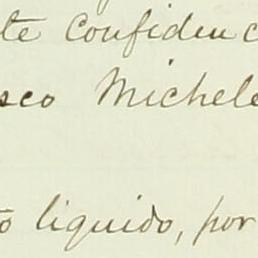 te confidenc
sco Michele
o liquido, por